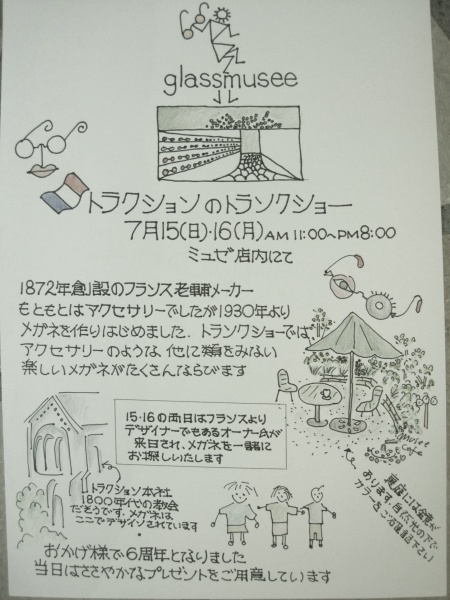 glassmusee
トラクションのトランクショー
7月15(日)・16(月)AM 11:00~PM8:00
ミュゼ店内にて
1872年創設のフランス老舗メーカー
もともとはアクセサリーでしたが1930年より
メガネを作りはじめました．トランクショーでは
アクセサリーのような、他に類をみない
楽しいメガネがたくさんならびます
15・16の両日はフランスより
デザイナーでもあるオーナー氏が
来日され、メガネを一緒に
お探しいたします
Musee
Cafe
裏庭には
あります。
下さい
トラクション本社
1800年代の教会
だそうです．メガネは
ここでデザインされています
おかげ様で6周年となりました
当日はささやかなプレゼントをご用意しています